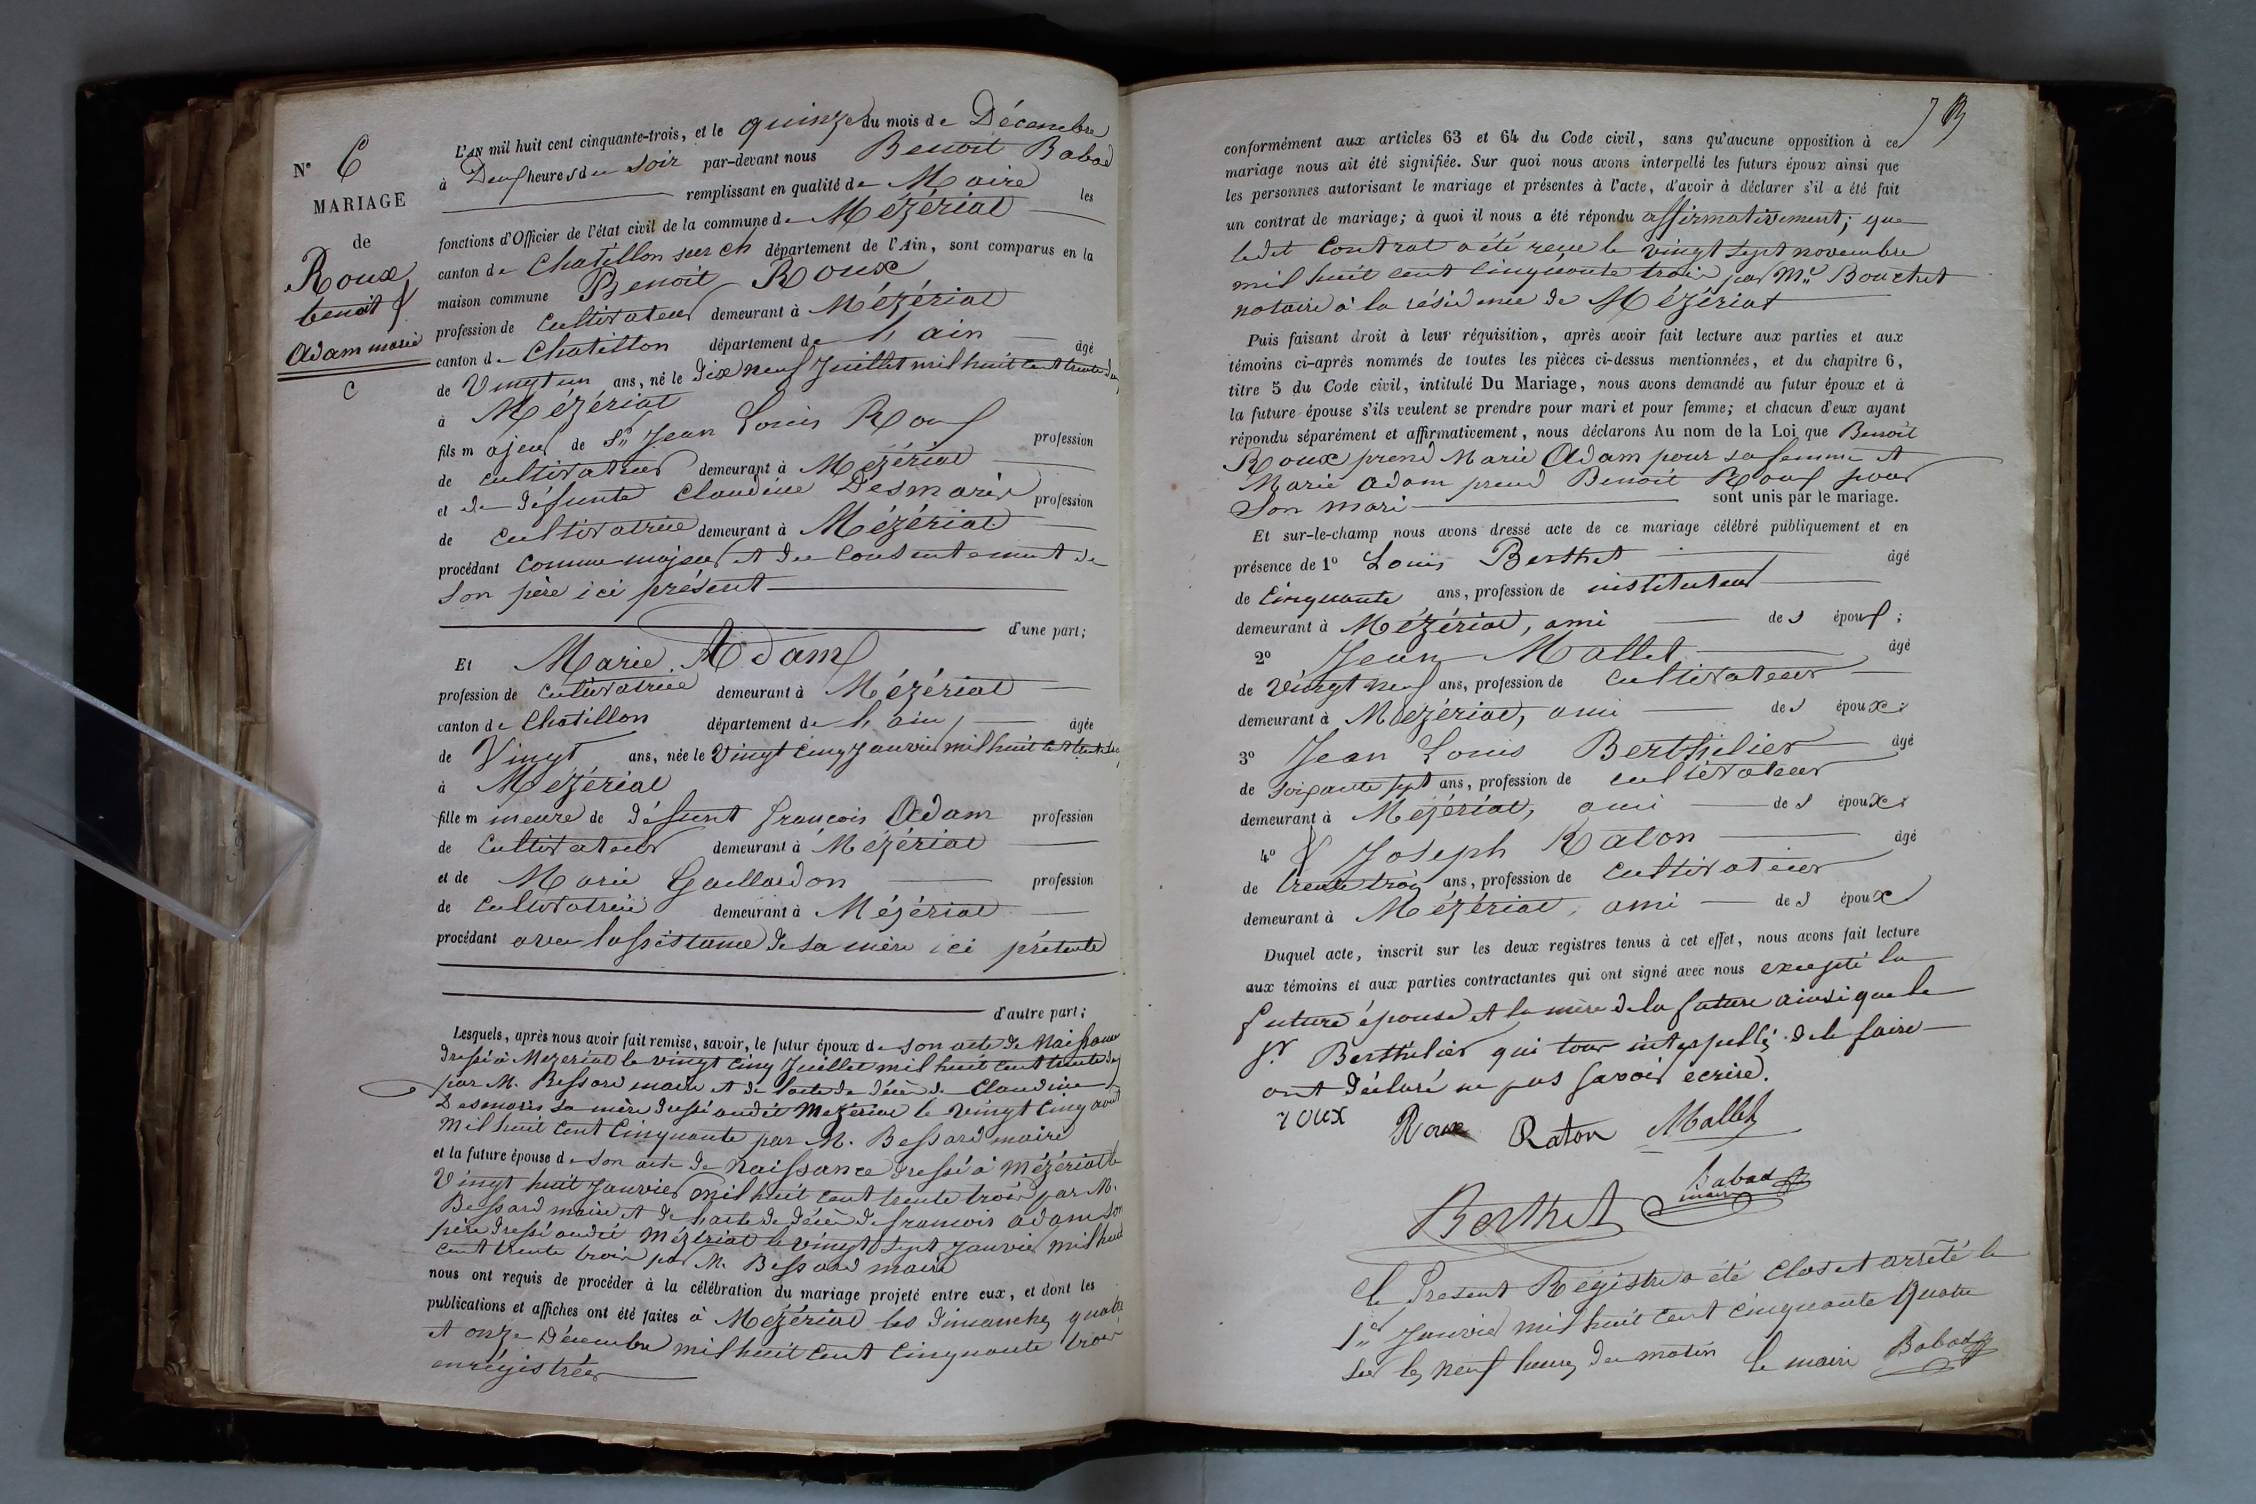 N° 6
MARIAGE
de
Roux
benoit
Adam marie
L'AN mil huit cent cinquante-trois, et le quinze du mois de Décembre
à Deux heures du soir par-devant nous Benoit Babad
remplissant en qualité de Maire les
fonctions d'Officier de l'état civil de la commune de Mézériat
canton de Chatillon sur département de l'Ain, sont comparus en la
maison commune Benoit Roux
profession de cultivateur demeurant à Mézériat
canton de Chatillon département de l'ain âgé
de Vingt un ans, né le dix neuf Juillet mil huit cent trente deux
à Mézériat
fils majeur de Sr Jean Louis Roux profession
de cultivateur demeurant à Mézériat
et de défunte Claudine Desmaris profession
de cultivatrice demeurant à Mézériat
procédant comme majeur et du consentement de
son père ici présent
d'une part;
Et Marie Adam
profession de cultivatrice demeurant à Mézériat
canton de Chatillon département de l'ain, âgée
de Vingt ans, née le Vingt cinq janvier mil huit cent trente
à Mézériat
fille mineure de défunt françois Adam profession
de Cultivateur demeurant à Mézériat
et de Marie Gaillardon profession
de Cultivatrice demeurant à Mézériat
procédant avec l'assistance de sa mère ici présente
d'autre part;
Lesquels, après nous avoir fait remise, savoir, le futur époux de son acte de Naissance
dressé à Mézériat le vingt cinq Juillet mil huit cent trente deux
par M. Bessard maire et de l'acte de décès de Claudine
Desmaris sa mère dressé audit Mézériat le vingt cinq aout
mil huit cent cinquante par M. Bessard maire
et la future épouse de son acte de naissance dressé à Mézériat le
Vingt huit janvier mil huit cent trente trois par M.
Bessard maire et de l'acte de décès de francois adam son
père dressé audit Mézériat le vingt sept janvier mil huit
cent trente trois par M. Bessard maire
nous ont requis de procéder à la célébration du mariage projeté entre eux, et dont les
publications et affiches ont été faites à Mézériat les dimanches quatre
et onze Décembre mil huit cent cinquante trois
enrégistrées
conformément aux articles 63 et 64 du Code civil, sans qu'aucune opposition à ce
mariage nous ait été signifiée. Sur quoi nous avons interpellé les futurs époux ainsi que
les personnes autorisant le mariage et présentes à l'acte, d'avoir à déclarer s'il a été fait
un contrat de mariage; à quoi il nous a été répondu affirmativement; que
ledit Contrat a été reçu le vingt sept novembre
mil huit cent cinquante trois par Me Bouchet
notaire à la résidence de Mézériat
Puis faisant droit à leur réquisition, après avoir fait lecture aux parties et aux
témoins ci-après nommés de toutes les pièces ci-dessus mentionnées, et du chapitre 6,
titre 5 du Code civil, intitulé Du Mariage, nous avons demandé au futur époux et à
la future épouse s'ils veulent se prendre pour mari et pour femme; et chacun d'eux ayant
répondu séparément et affirmativement, nous déclarons Au nom de la Loi que Benoit
Roux prend Marie Adam pour sa femme et
Marie Adam prend Benoit Roux pour
son mari sont unis par le mariage.
Et sur-le-champ nous avons dressé acte de ce mariage célébré publiquement et en
présence de 1° Louis Berthet âgé
de Cinquante ans, profession de instituteur
demeurant à Mézériat, ami des époux;
2° Jean Mallet âgé
de Vingt neuf ans, profession de cultivateur
demeurant à Mézériat, ami des époux;
3° Jean Louis Berthelier âgé
de soixante sept ans, profession de cultivateur
demeurant à Mézériat, ami des époux;
4° Joseph Raton âgé
de trente trois ans, profession de cultivateur
demeurant à Mézériat, ami des époux
Duquel acte, inscrit sur les deux registres tenus à cet effet, nous avons fait lecture
aux témoins et aux parties contractantes qui ont signé avec nous excepté la
future épouse et la mère de la future ainsi que le
Sr Berthelier qui tous interpellés de le faire
ont déclaré ne pas savoir écrire.
roux Roux Raton Mallet
Babad
maire
Berthet
le Présent Régistre a été clos et arrêté le
1er Janvier mil huit cent cinquante quatre
sur les neuf heures du matin le maire Babad